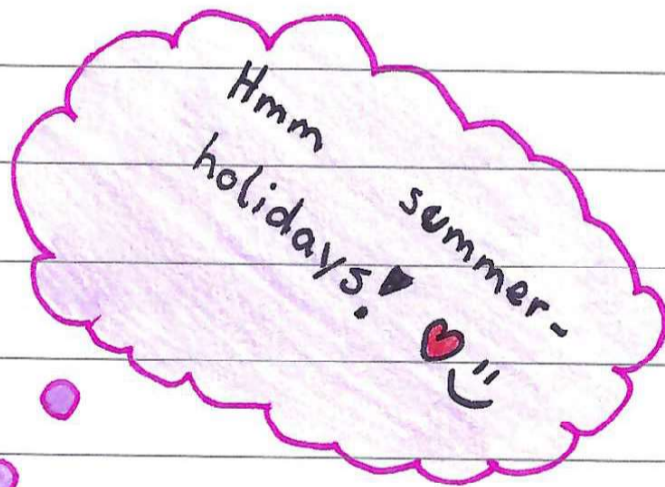 Hmm summer-
holidays!